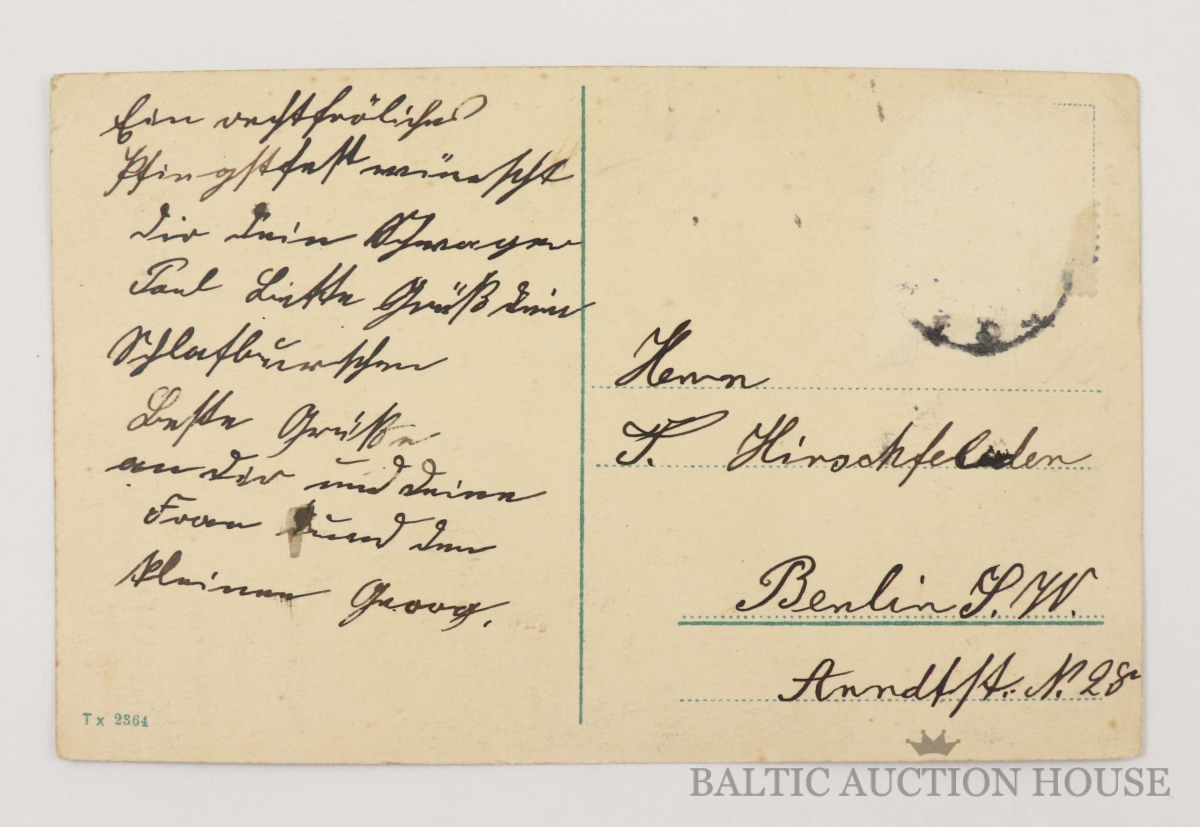 Ein recht fröliches
Pfingstfest wünscht
dir dein Schwager
Paul Bitte Grüß dein
Schlafburschen
Beste Grüße
an dir und deine
Frau und den
kleinen Georg.
Tx 2364
Herrn
Hirschfelder
Berlin S.W.
Arndtstr. N. 28
BALTIC AUCTION HOUSE